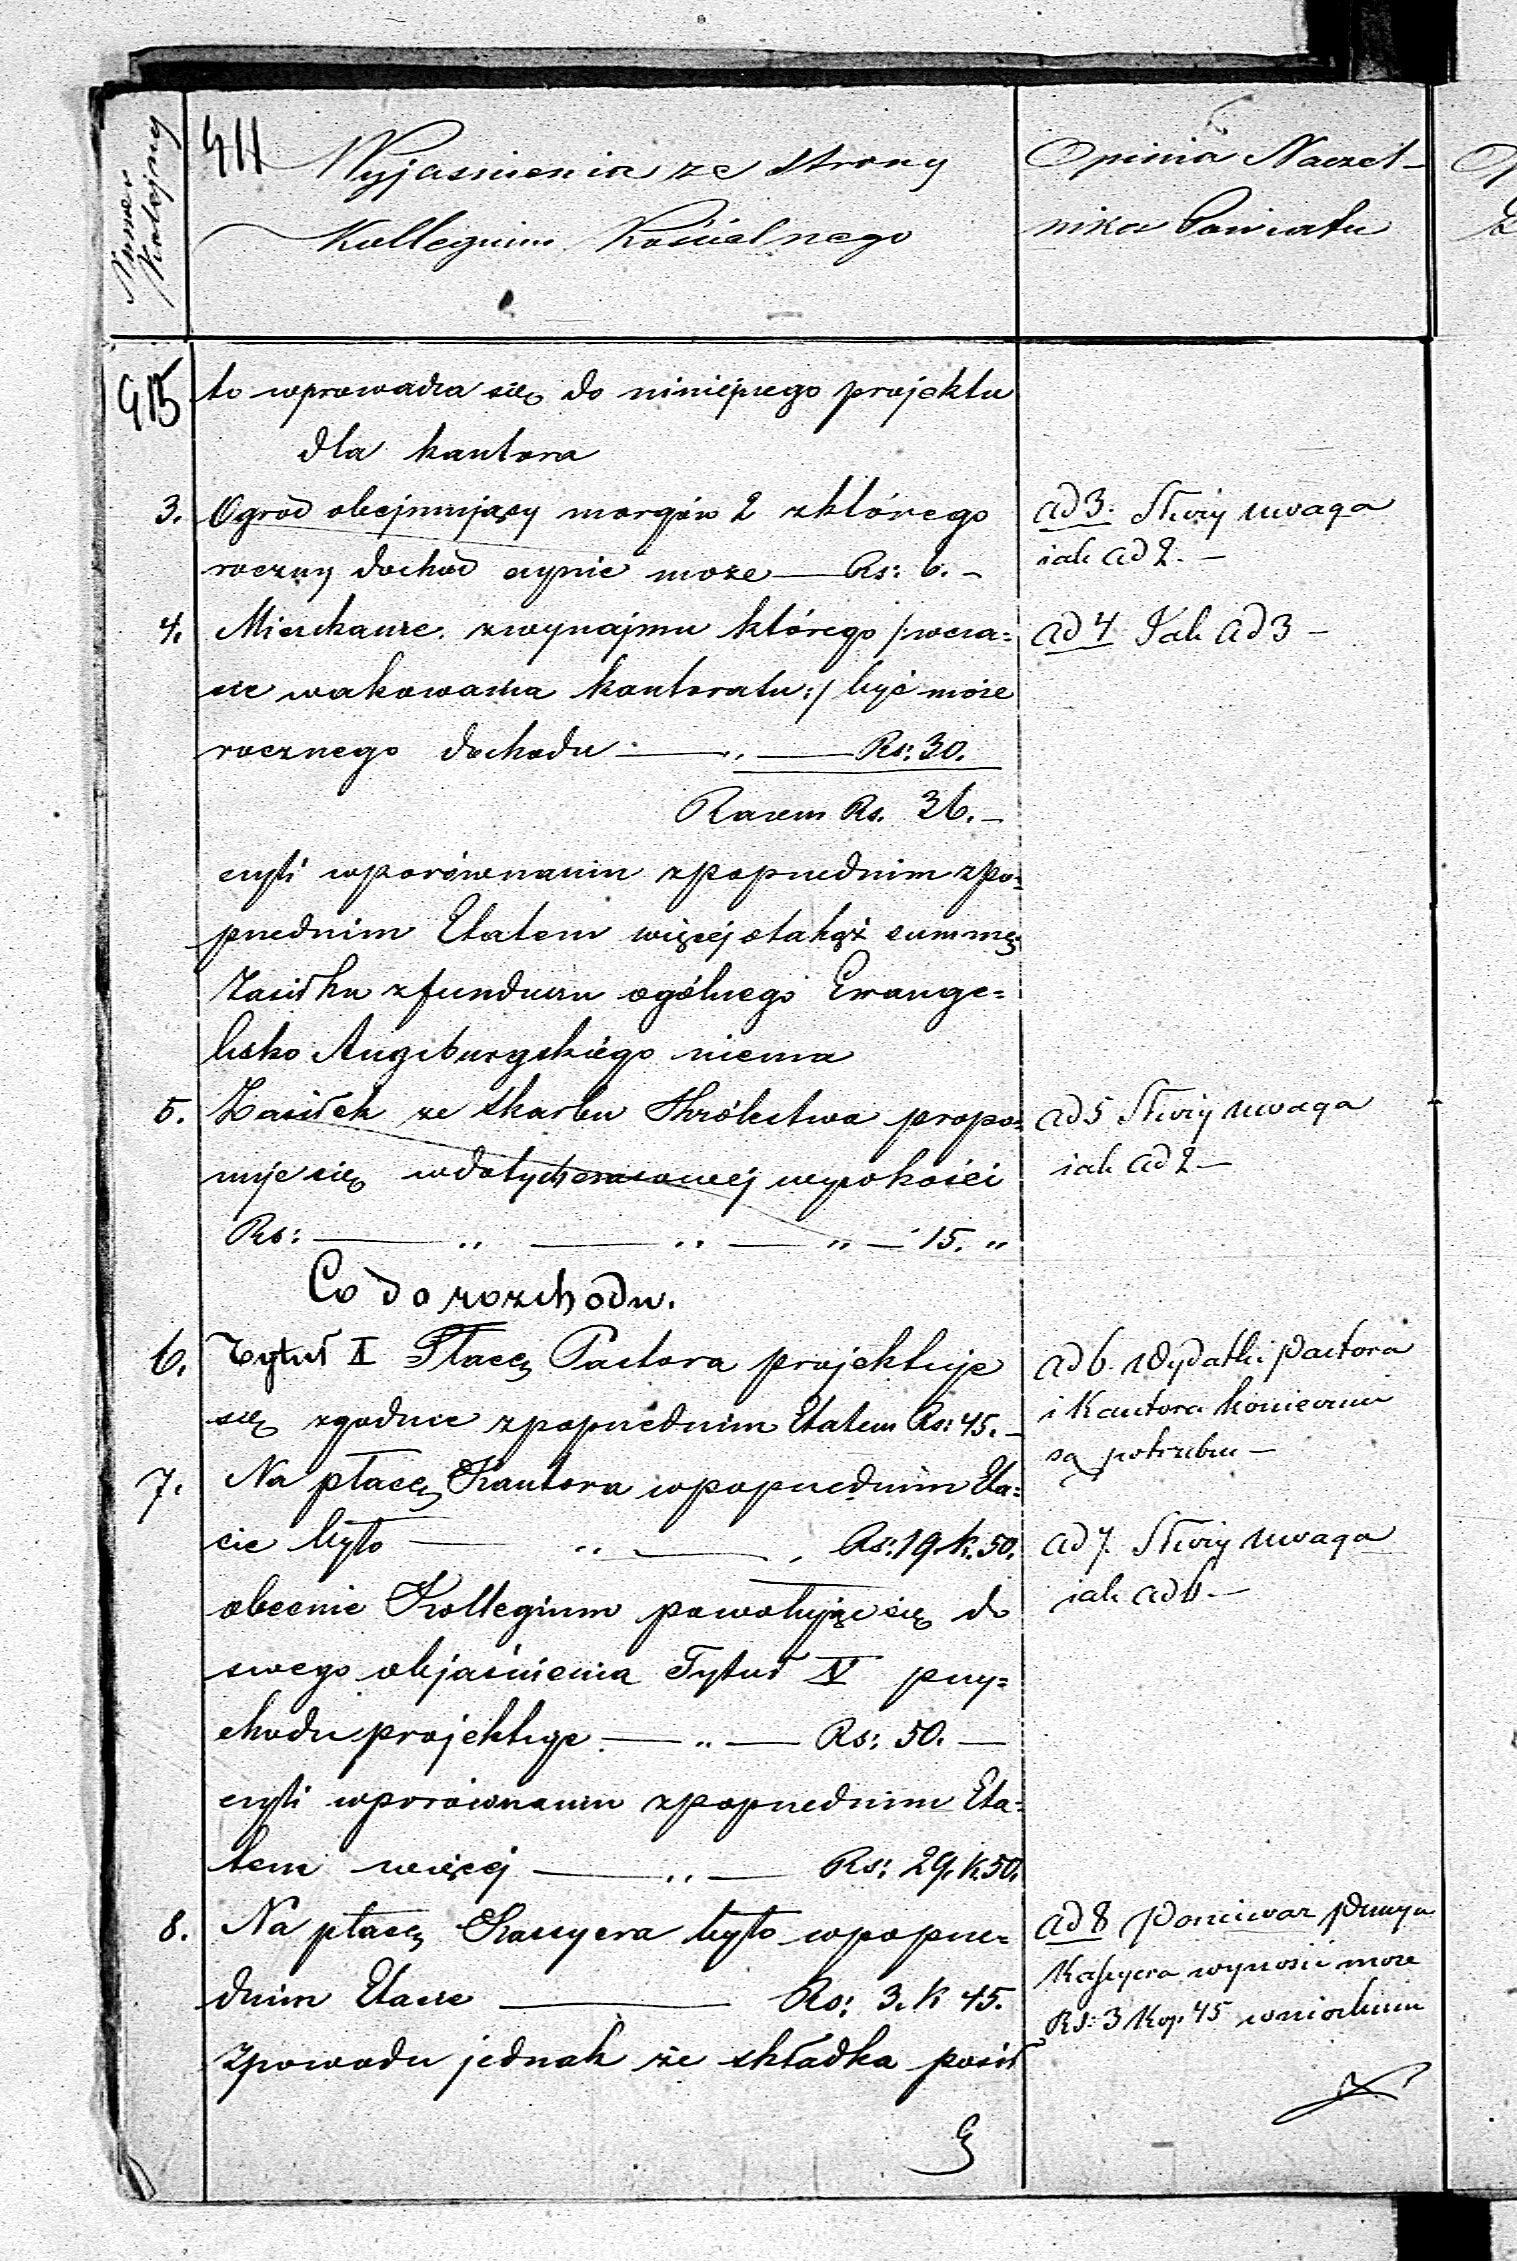 Numer Kolejny
411
Wyjasnienia ze strony
Kollegium Kościelnego
Opinia Naczel-
nika Powiatu
415
to wprowadza się do niniejszego projektu
dla kantora
3. Ogrod obejmujący morgów 2 zktórego
roczny dochod czynić może — Rs: 6. –
ad 3. Służy uwaga
iak ad 2. –
4. Mieszkanie. zwynajmu którego /:wcza=
sie wakowania kantoratu:/ być może
rocznego dochodu — „ — Rs: 30.
ad 4 Jak ad 3 –
Razem Rs. 36. –
czyli wporównaniu zpoprzednim zpo=
przednim Etatem więcej otakąż summę
Zasiłku zfunduszu ogólnego Ewange=
lisko Augsburgskiego niema
5. Zasiłek ze skarbu Królestwa propo=
nuje się wdotychczasowej wysokości
Rs: — „ — „ — „ — 15. „
ad 5 Służy uwaga
iak ad 2 –
Co do rozchodu.
6. Tytuł I Płacę Pastora projektuje
się zgodnie zpoprzednim Etatem Rs: 45. –
ad 6. Wydatki Pastora
i Kantora koniecznie
są potrzebne –
7. Na płacę Kantora wpoprzednim Eta=
cie było — „ — „ Rs: 19. k. 50.
obecnie Kollegium powołując się do
swego objaśnienia Tytuł IV przy=
chodu projektuje — „ — Rs: 50. —
czyli wporównaniu zpoprzednim Eta=
tem więcej — „ — Rs: 29. k. 50.
ad 7. Służy uwaga
iak ad 6 –
8. Na płacę Kassyera było wpoprze=
dnim Etacie — Rs: 3. k 45.
zpowodu jednak że składka pośił
ad 8 Ponieważ
Kassyera wynosić może
Rs: 3 Kop. 45